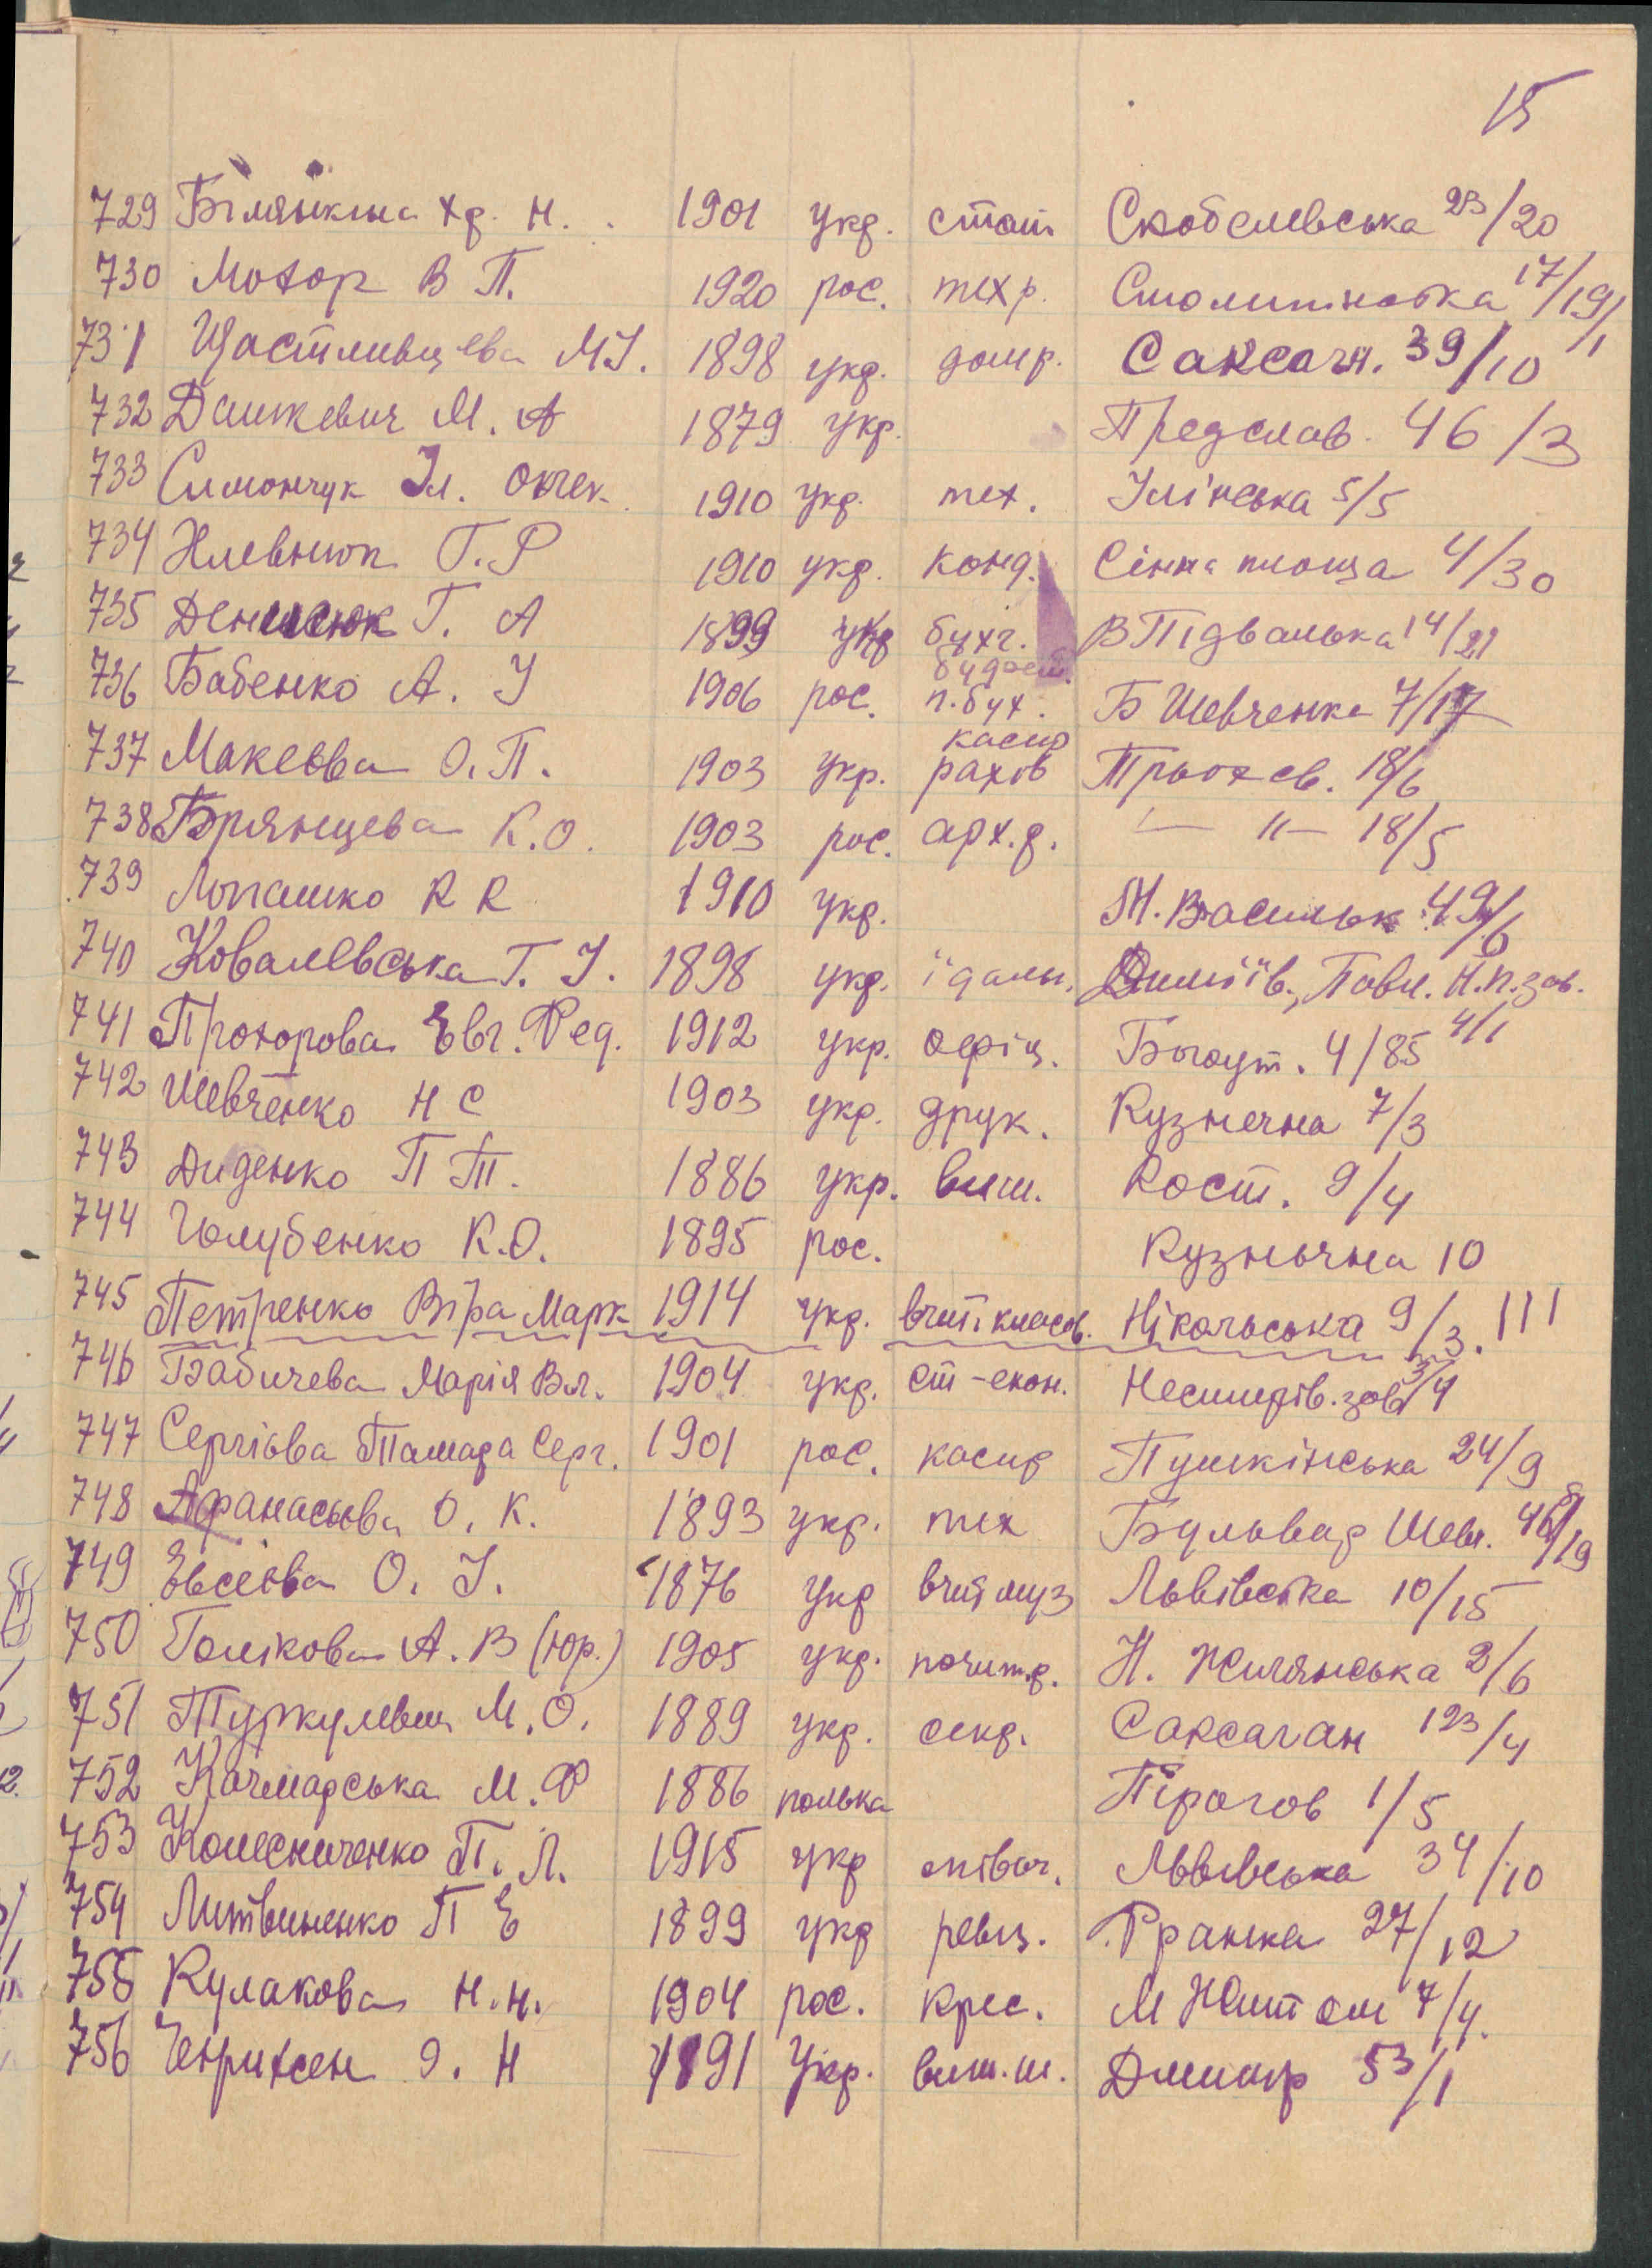 15
729 Білянкіна Хр. Н. 1901 укр. стат. Скобелевська 23/20
730 Мохор В П. 1920 рос. техр. Столипінська 17/19/1
731 Щастливцева М І. 1898 укр. домр. Саксаг. 39/10
732 Дашкевич М. А 1879 укр. Предслав. 46/3
733 Симончук Іл. Олек. 1910 укр. тех. Ілінська 5/5
734 Хлевнюк Г. Р 1910 укр. конд. Сінна площа 4/30
735 Денисюк Г. А 1899 укр бухг. В Підвальна 14/21
736 Бабенко А. І 1906 рос. п. бух. Б Шевченка 7/17
737 Макеєва О. П. 1903 укр. касир рахів Трьохсв. 18/6
738 Брянцева К. О. 1903 рос. арх. р. — " — 18/5
739 Лопашко К К 1910 укр. М. Васильк. 49/6
740 Ковалевська Г. І. 1898 укр. їдальн. Деміїв., Павл. Н. п. зав. 4/1
741 Прохорова Євг. Фед. 1912 укр. офіц. Бєгоут. 4/85
742 Шевченко Н С 1903 укр. друк. Кузнечна 7/3
743 Диденко П Т. 1886 укр. виш. Рост. 9/4
744 Голубенко К. О. 1895 рос. Кузнечна 10
745 Петренко Віра Марк 1914 укр. вчит. класов. Нікольська 9/3. !!!
746 Бабичева Марія Вл. 1904 укр. ст-екон. Несторів. зав 3/4
747 Сергієва Тамара Серг. 1901 рос. касир Пушкінська 24/9
748 Афанасьєва О. К. 1893 укр. тех Бульвар Шевч. 46/19
749 Євсеєва О. І. 1876 укр вчит муз Львівська 10/15
750 Голікова А. В (Юр.) 1905 укр. почит. р. Н. Жилянська 2/6
751 Туркулевич М. О. 1889 укр. секр. Саксаган 123/4
752 Качмарська М. Ф 1886 полька Пірогов 1/5
753 Колесниченко П. Л. 1915 укр співач. Львівська 34/10
754 Литвиненко П Є 1899 укр ревіз. Франка 27/12
755 Кулакова Н. Н. 1904 рос. крес. М Житом 7/4.
756 Генрихсен Э. Н 1891 Укр. виш. ш. Дмитр 53/1